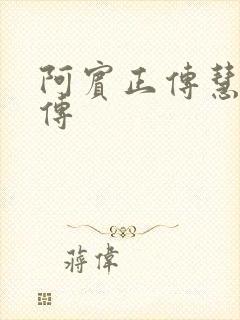 阿賓正傳慧
傳
蔣偉